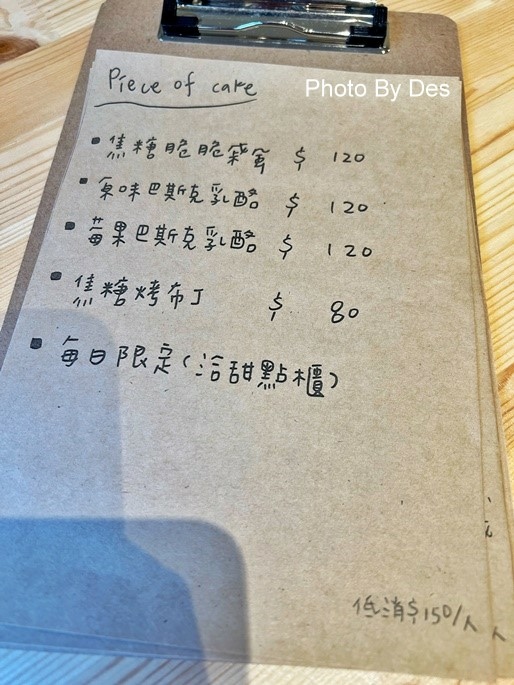 Piece of cake
Photo By Des
▪ 焦糖脆脆袋蛋 $ 120
▪ 原味巴斯克乳酪 $ 120
▪ 莓果巴斯克乳酪 $ 120
▪ 焦糖烤布丁 $ 80
▪ 每日限定(洽甜點櫃)
低消$150/人